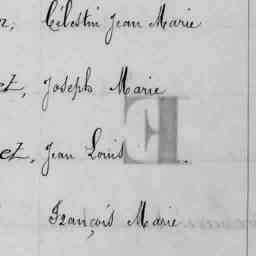 Célestin Jean Marie
Joseph Marie
Jean Louis
François Marie